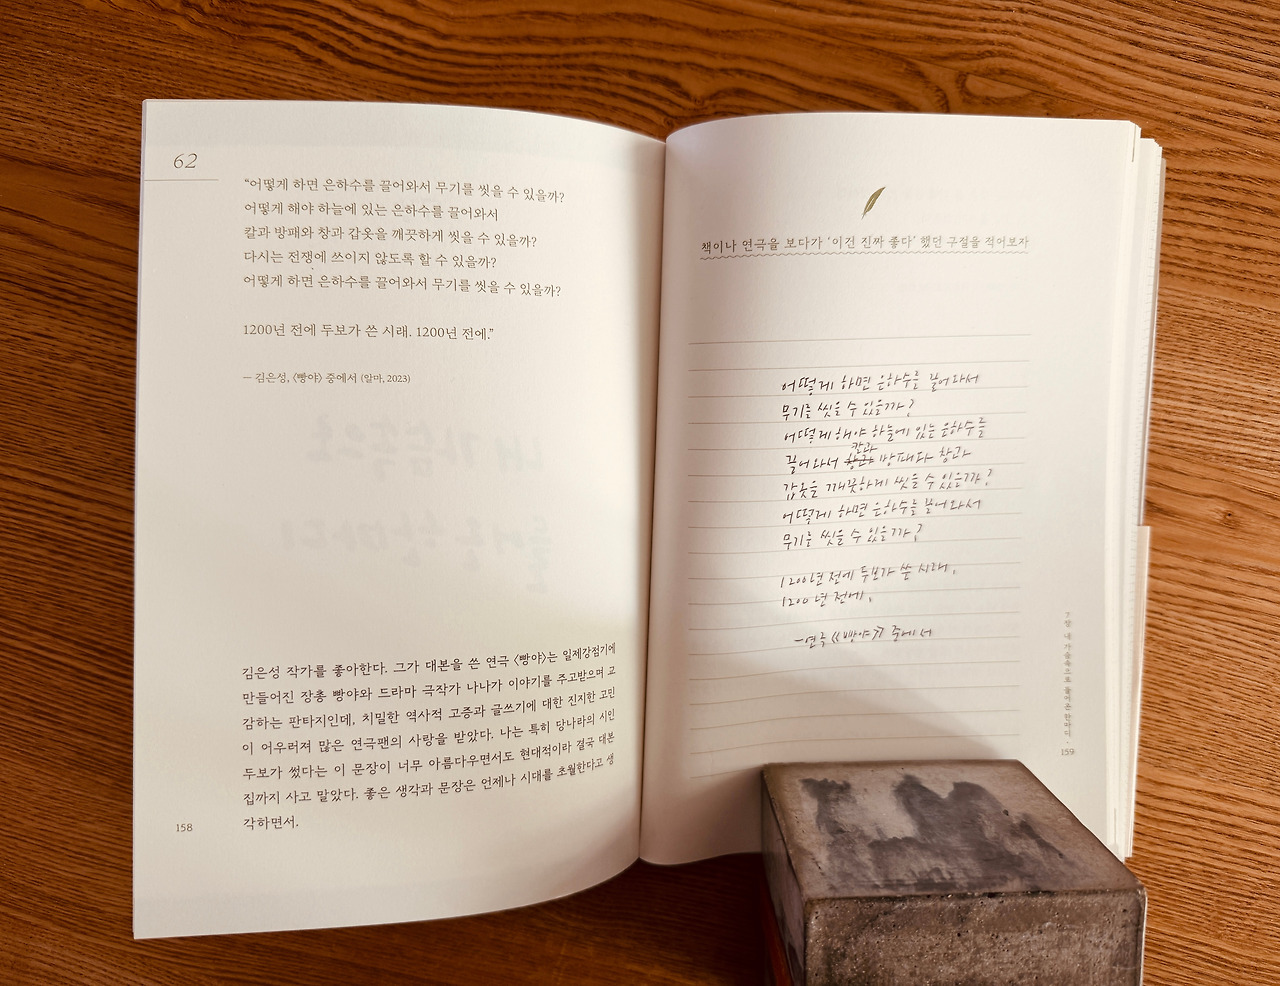 62
“어떻게 하면 은하수를 끌어와서 무기를 씻을 수 있을까?
어떻게 해야 하늘에 있는 은하수를 끌어와서
칼과 방패와 창과 갑옷을 깨끗하게 씻을 수 있을까?
다시는 전쟁에 쓰이지 않도록 할 수 있을까?
어떻게 하면 은하수를 끌어와서 무기를 씻을 수 있을까?
1200년 전에 두보가 쓴 시래. 1200년 전에.”
― 김은성, 〈빵야〉 중에서 (알마, 2023)
김은성 작가를 좋아한다. 그가 대본을 쓴 연극 〈빵야〉는 일제강점기에
만들어진 장총 빵야와 드라마 극작가 나나가 이야기를 주고받으며 교
감하는 판타지인데, 치밀한 역사적 고증과 글쓰기에 대한 진지한 고민
이 어우러져 많은 연극팬의 사랑을 받았다. 나는 특히 당나라의 시인
두보가 썼다는 이 문장이 너무 아름다우면서도 현대적이라 결국 대본
집까지 사고 말았다. 좋은 생각과 문장은 언제나 시대를 초월한다고 생
각하면서.
158
책이나 연극을 보다가 ‘이건 진짜 좋다’ 했던 구절을 적어보자
어떻게 하면 은하수를 끌어와서
무기를 씻을 수 있을까?
어떻게 해야 하늘에 있는 은하수를
칼과
끌어와서 방패와 창과
갑옷을 깨끗하게 씻을 수 있을까?
어떻게 하면 은하수를 끌어와서
무기를 씻을 수 있을까?
1200년 전에 두보가 쓴 시래.
1200년 전에.
―연극 《빵야》 중에서
7장 내 가슴속으로 들어온 한마디 · 159